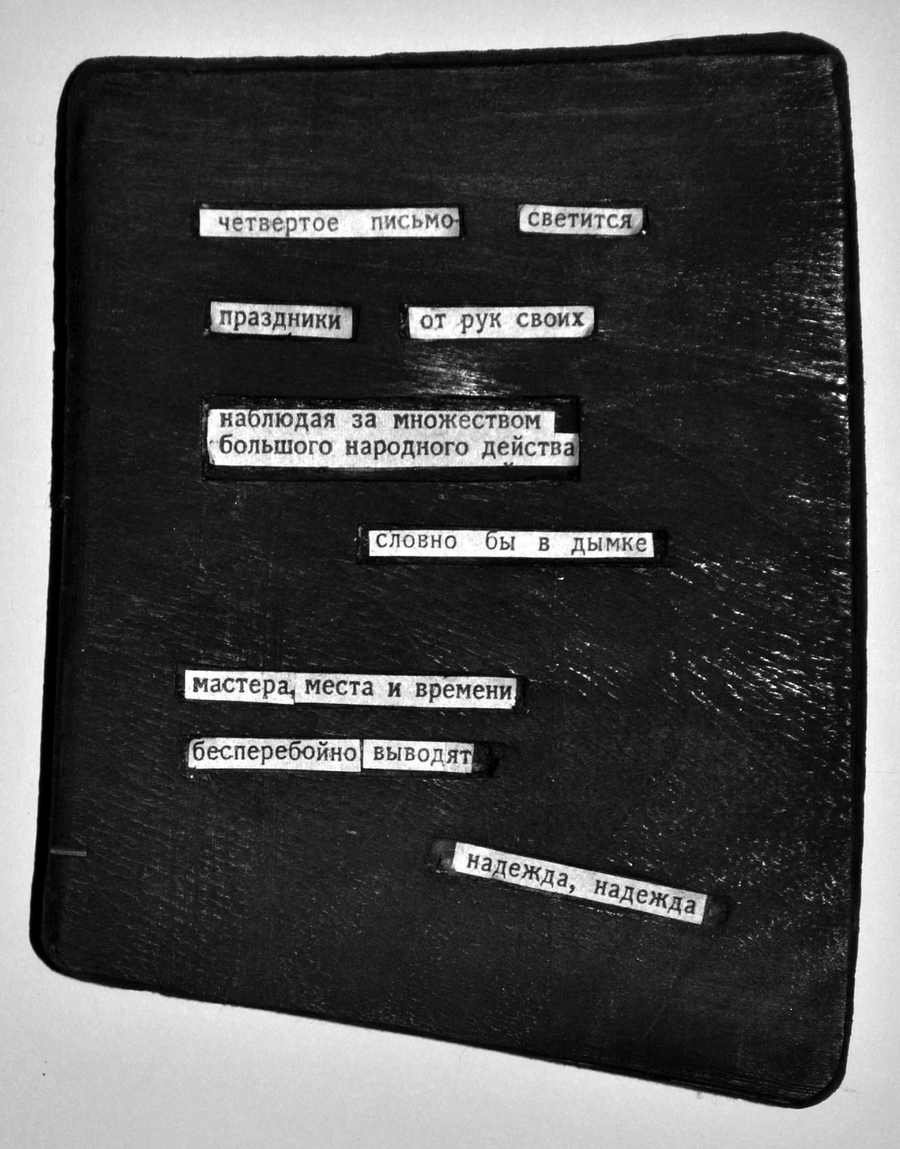 четвертое письмо- светится
праздники от рук своих
наблюдая за множеством
большого народного действа
словно бы в дымке
мастера, места и времени
бесперебойно выводят
надежда, надежда